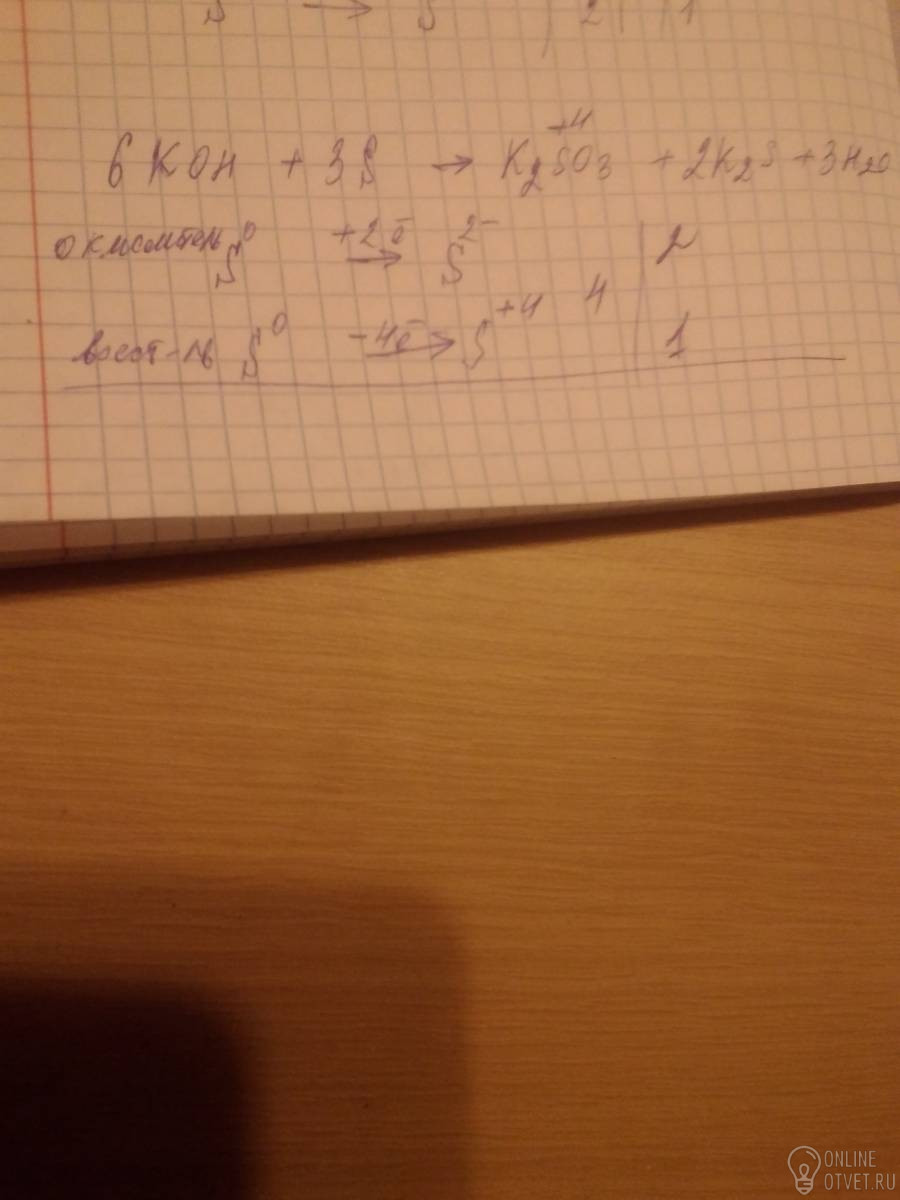 S → S | 2 | | 1
+4
6 KOH + 3S → K2SO3 + 2K2S + 3H2O
окислитель S⁰ +2ē → S²⁻ | 2
восст-ль S⁰ -4ē → S⁺⁴ 4 | 1
ONLINE
OTVET.RU